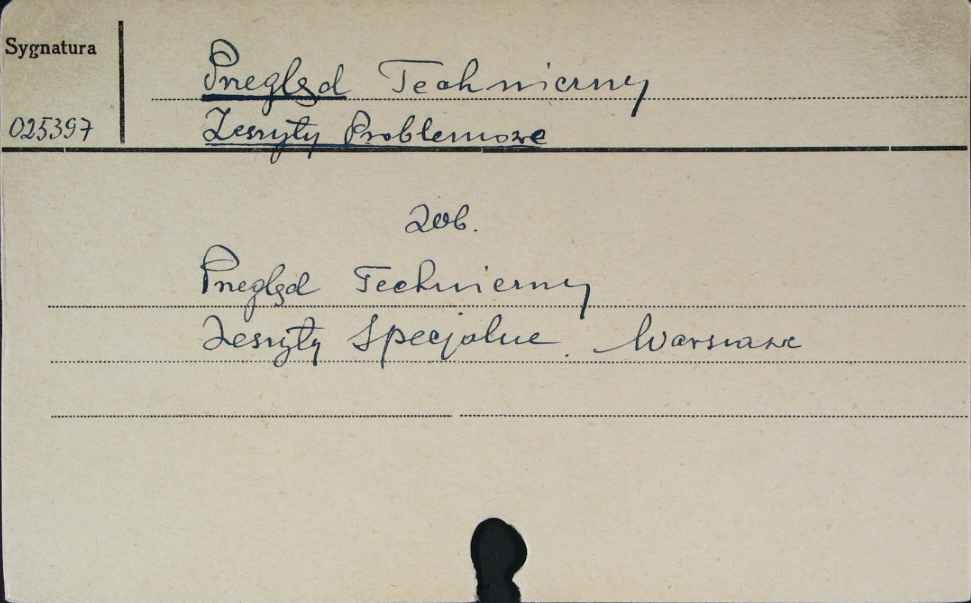 Sygnatura
Przegląd Techniczny
025397
Zeszyty Problemowe
Zob.
Przegląd Techniczny
Zeszyty Specjalne. Warszawa